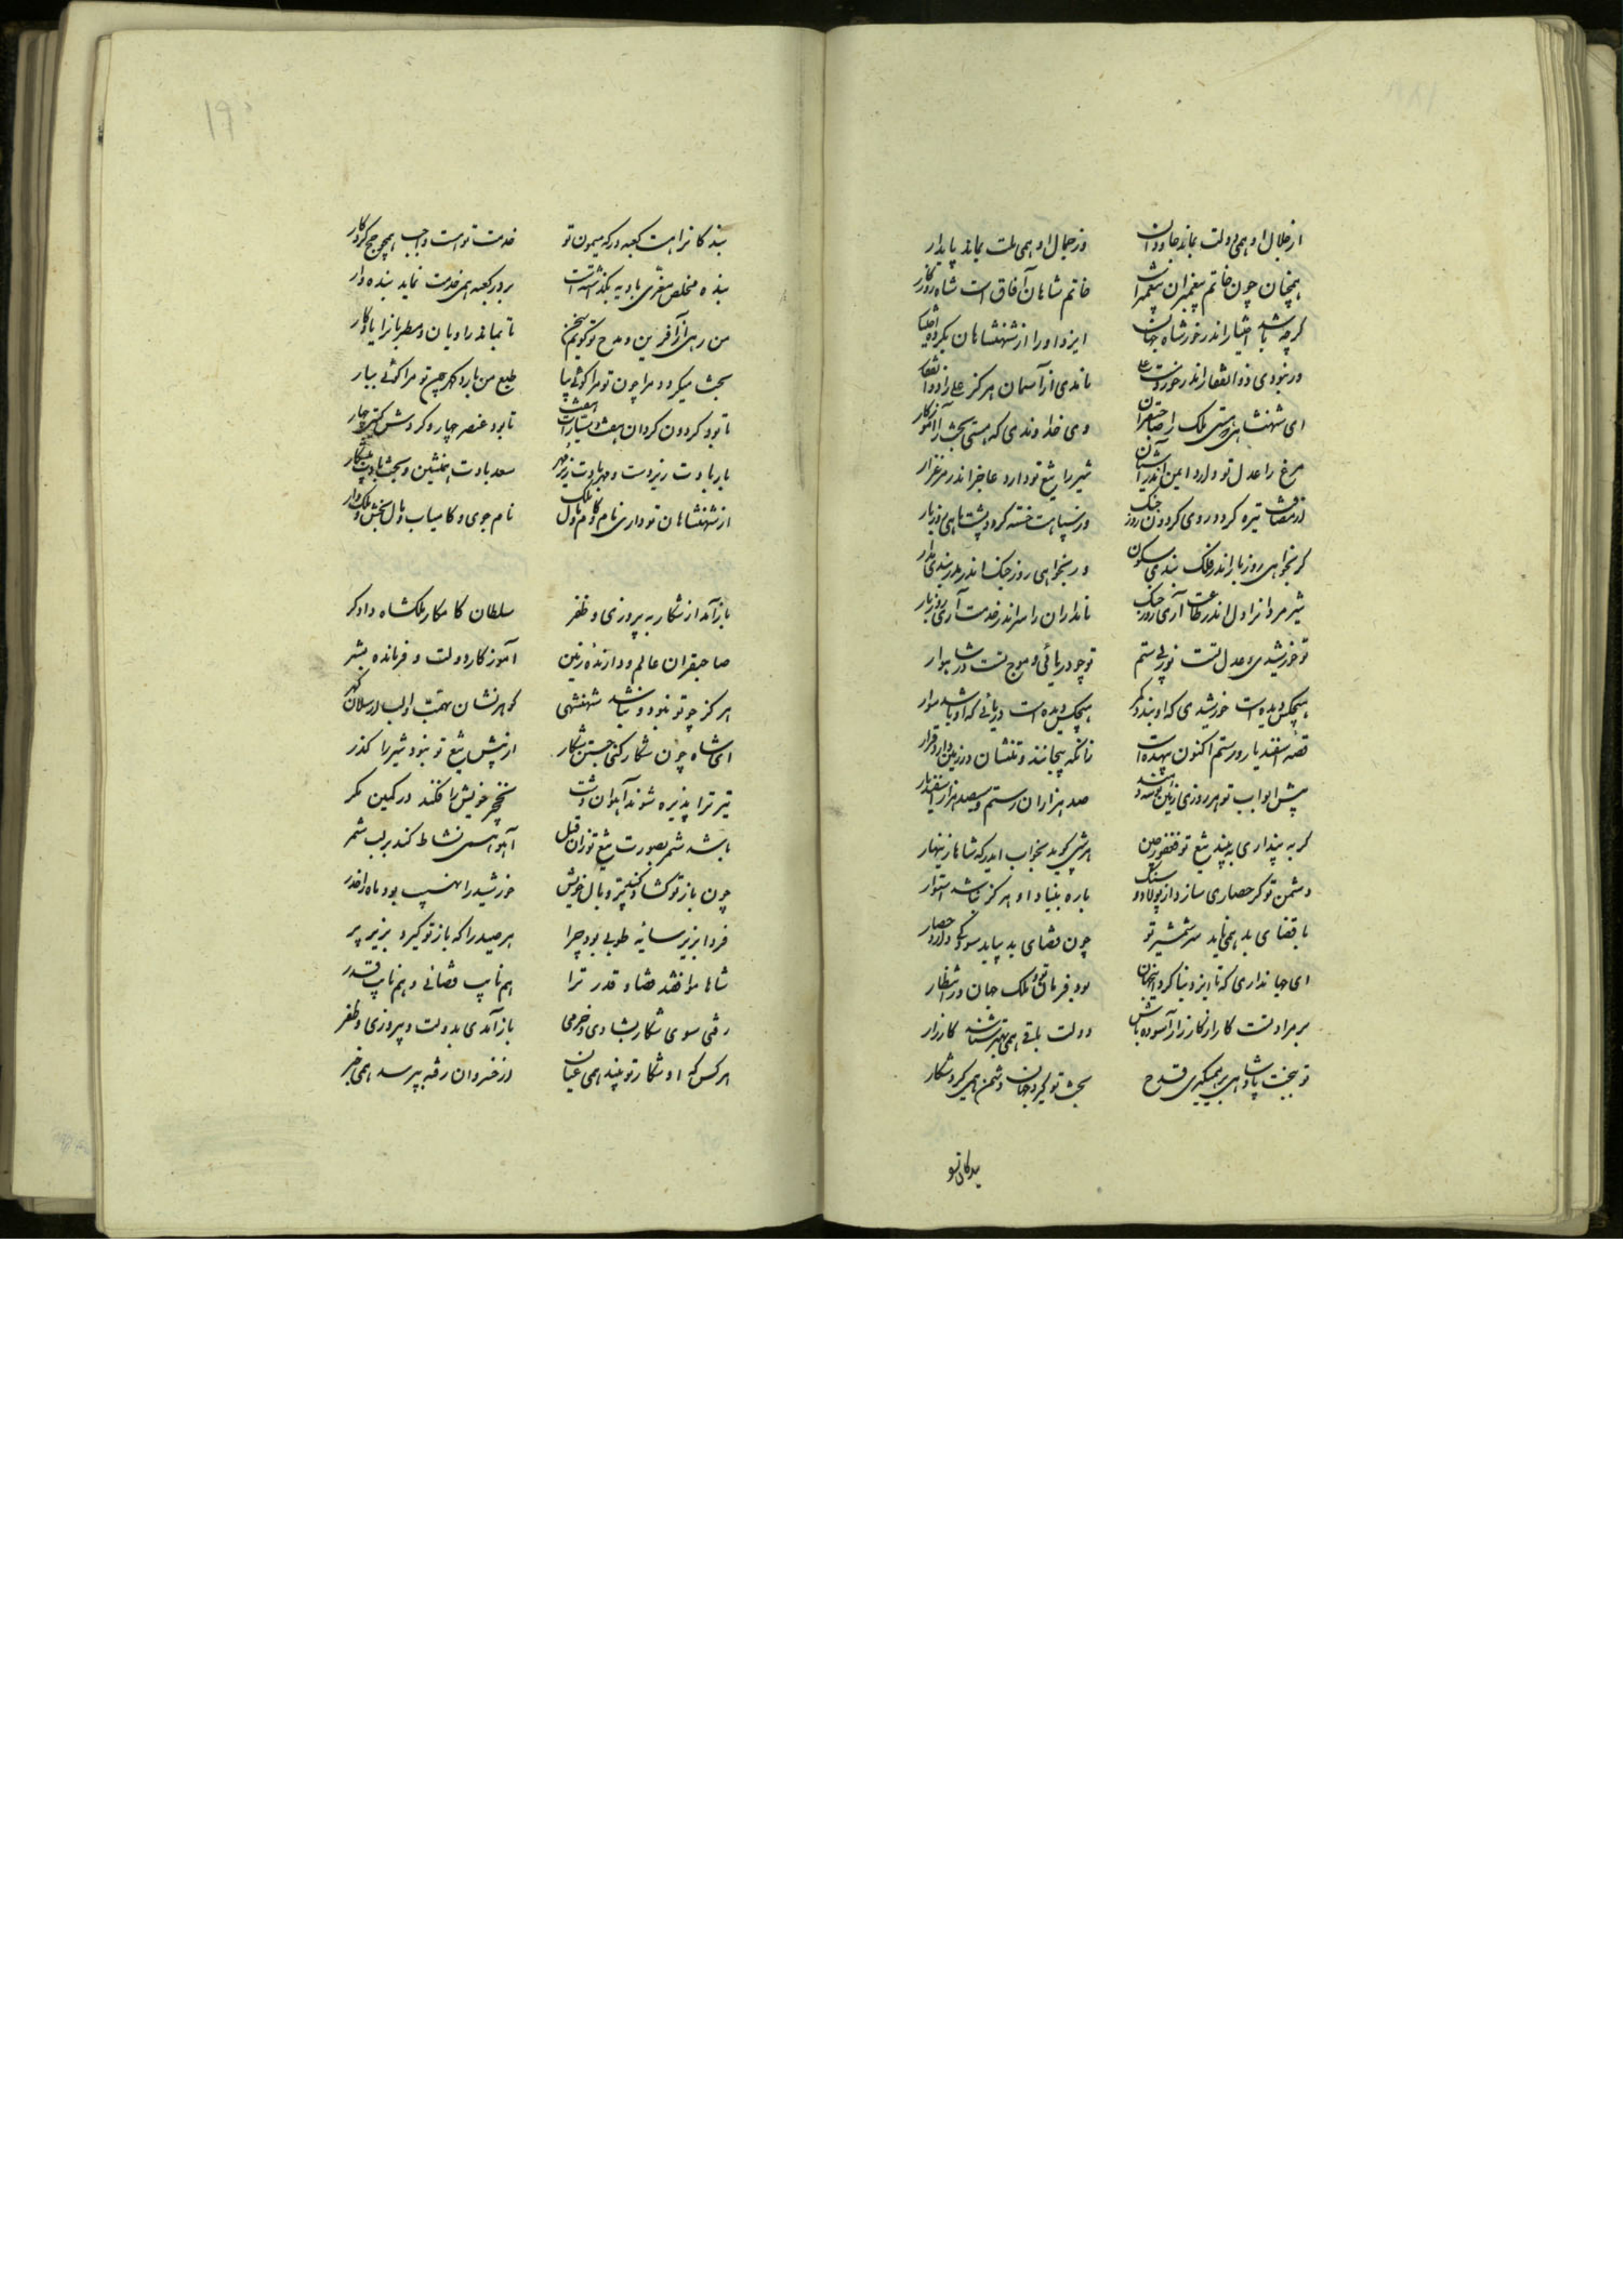 از جلال او همی دولت بماند جاودان وز جمال او همی ملت بماند پایدار
همچنان چون خاتم پیغمبران پیغمبر است خاتم شاهان آفاق است شاه روزگار
گرچه باشد اختیار اندر خور شاه جهان ایزد او را از شهنشاهان بکرده اختیار
ور نبودی ذوالفقار اندر خور دست علی نامدی از آسمان هرگز علی را ذوالفقار
ای شهنشاهی که هستی ملک را صاحبقران وی خداوندی که هستی بخت را آموزگار
مرغ را عدل تو دارد ایمن اندر آشیان شیر را تیغ تو دارد عاجز اندر مرغزار
از مصافت تیره گردد روی گردون روز جنک وز سپاهت خسته گردد پشت ماهی روز بار
گر بخواهی روز بار اندر فلک بندی سکون ور بخواهی روز جنک اندر بندی مدار
شیر مردانرا دل اندر طاعت آری روز جنک نامداران را سر اندر خدمت آری روز بار
تو خورشیدی و عدل تست نور بی ستم تو چو دریائی و موج تست در شاهوار
هیچکس دیده است خورشیدی که او بندد کمر هیچکس دیده است دریائی که او باشد سوار
قصه اسفندیار و رستم اکنون بیهده است زانکه بیجانند و تنشان در زمین دارد قرار
پیش ابواب تو هر روزی زمین بوسه دهند صد هزاران رستم و سیصد هزار اسفندیار
گر به پنداری به بیند تیغ تو فغفور چین هر شبی گوید بخواب اندر که شاها زینهار
دشمن تو گر حصاری سازد از پولاد و سنگ باره بنیاد او هرگز نباشد استوار
با قضای بد همی ماند سر شمشیر تو چون قضای بد بیاید سود کی دارد حصار
ای جهانداری که تا ایزد بنا کرد این جهان بود فرمان تو ملک جهان در انتظار
بر مراد تست کار از کارزار آسوده باش دولت باقی همی بهتر شناسد کارزار
تو بتخت پادشاهی بر همیگیری قدح بخت تو گیرد جهان و دشمن همی گیرد شکار
بندگانرا
۱۹۰
بندگانرا هست کعبه درگه میمون تو خدمت تو هست واجب همچو حج کردگار
بنده مخلص معزی بادیه بگذشته است بر در کعبه همی خدمت نماید بنده وار
من رهی از آفرین و مدح تو گویم سخن تا بماند راویان و مطربانرا یادگار
بخت میگردد مرا چون تو مرا گوئی بیا طبع من بارد گهر چون تو مرا گوئی بیار
تا بود گردون گردان هفت و سیارات هفت تا بود عنصر چهار و گردش گیتی چهار
یار بادت زیر دست و مهر بادت زیر مهر سعد بادت همنشین و بخت بادت پیشکار
از شهنشاهان تو داری نام و کام و مال و ملک نام جوی و کام یاب و مال بخش و ملک دار
باز آمد از شکار به پیروزی و ظفر سلطان کامکار ملکشاه دادگر
صاحبقران عالم و دارنده زمین آموزگار دولت و فرمانده بشر
هرگز چو تو نبود و نباشد شهنشهی گوهرنشان بهمت و الب ارسلان گهر
ای شاه چون شکار کنی جستن شکار از پیش تیغ تو نبود شیر را گذر
تیر ترا پذیره شوند آهوان دشت نخجیر خویش را فکند در کمین مگر
باشد شمر بصورت تیغ تو زان قبل آهو همی نشاط کند بر لب شمر
چون باز تو گشاده کند پر و بال خویش خورشید را نهیب بود ماه را خطر
فردا بزیر سایه طوبی بود چرا هر صید را که باز تو گیرد بزیر پر
شاها موافقند قضا و قدر ترا هم نایب قضائی و هم نایب قدر
رفتی سوی شکار بشادی و خرمی باز آمدی بدولت و پیروزی و ظفر
هر کس که او شکار تو بیند همی عیان از خسروان رفته بپرسد همی خبر